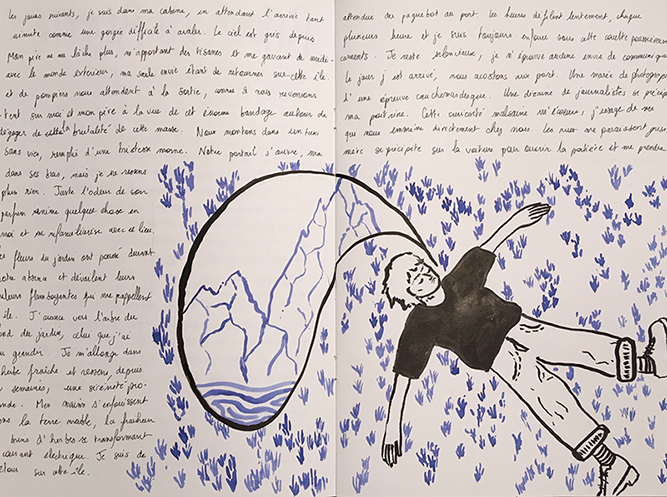 les jours suivants, je suis dans ma cabine, en attendant l'arrivée tant attendue du paquebot au port. les heures défilent lentement, chaque
minute comme une gorgée difficile à avaler. Le ciel est gris depuis plusieurs heures et je suis toujours enfouie sous cette couette
Mon père ne me lâche plus, m'apportant des tisanes et me gavant de médi- caments. Je reste silencieuse, je n'éprouve aucune envie de
avec le monde extérieur, ma seule envie étant de retourner sur cette île. Le jour J est arrivé, nous accostons au port. Une marée de
et de pompiers nous attendent à la sortie, comme si nous revenions d'une épreuve cauchemardesque. Une dizaine de journalistes se
tent sur moi et mon père à la vue de cet énorme bandage autour de ma poitrine. Cette curiosité malsaine m'écoeure, j'essaye de me
dégager de la brutalité de cette masse. Nous montons dans un taxi que nous emmène directement chez nous. Les rues me paraissent
sans vie, rempli d'une tristesse morne. Notre portail s'ouvre, ma mère se précipite sur la voiture pour ouvrir la portière et me prendre
dans ses bras, mais je ne ressens
plus rien. Juste l'odeur de son
parfum ranime quelque chose en
moi et me refamiliarise avec ce lieu.
fleurs du jardin ont poussé durant
absence et dévoilent leurs
couleurs flamboyantes qui me rappellent
île. J'avance vers l'arbre du
fond du jardin, celui que j'ai
vu grandir. Je m'allonge dans
l'herbe fraîche et ressens, depuis
semaines, une sérénité pro-
fonde. Mes mains s'enfouissent
dans la terre meuble, la fraîcheur
brins d'herbe se transformant
courant électrique. Je suis de
retour sur cette île.